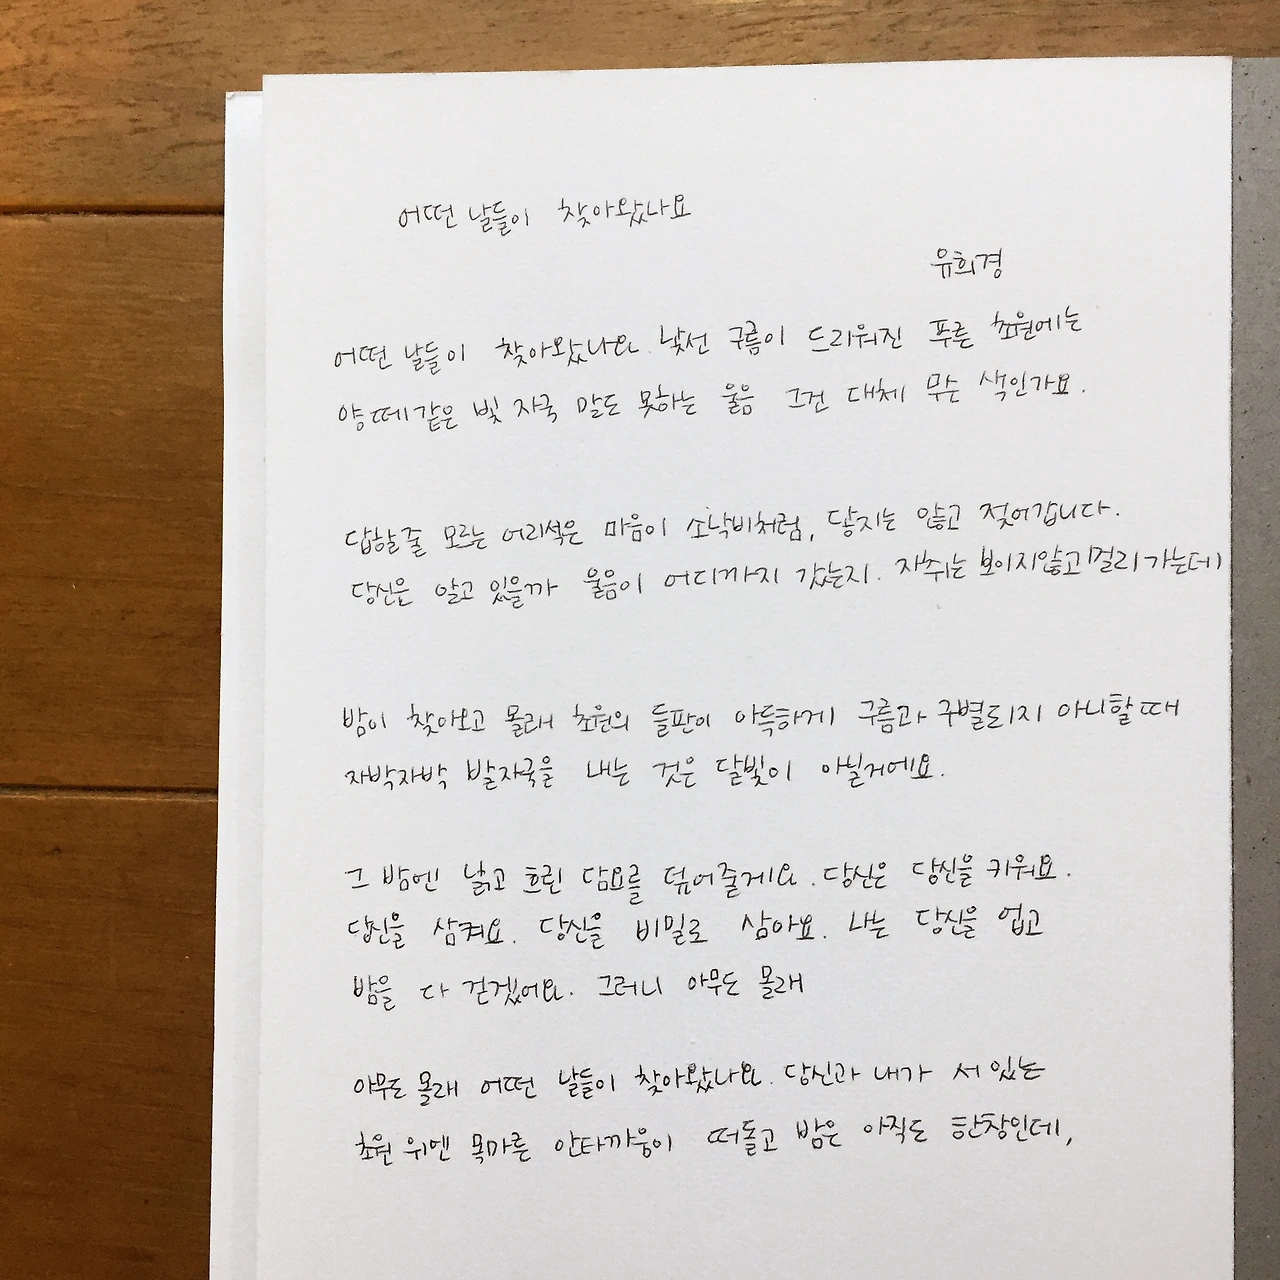 어떤 날들이 찾아왔나요
유희경
어떤 날들이 찾아왔나요. 낯선 구름이 드리워진 푸른 초원에는
양떼같은 빛 자국 말도 못하는 울음 그건 대체 무슨 색인가요.
답할줄 모르는 어리석은 마음이 소낙비처럼, 닿지는 않고 젖어갑니다.
당신은 알고 있을까 울음이 어디까지 갔는지. 자취는 보이지않고 멀리 가는데
밤이 찾아오고 몰래 초원의 들판이 아득하게 구름과 구별되지 아니할 때
자박자박 발자국을 내는 것은 달빛이 아닐거에요.
그 밤엔 낡고 흐린 담요를 덮어줄게요. 당신은 당신을 키워요.
당신을 삼켜요. 당신을 비밀로 삼아요. 나는 당신을 업고
밤을 다 걷겠어요. 그러니 아무도 몰래
아무도 몰래 어떤 날들이 찾아왔나요. 당신과 내가 서 있는
초원 위엔 목마른 안타까움이 떠돌고 밤은 아직도 한창인데,